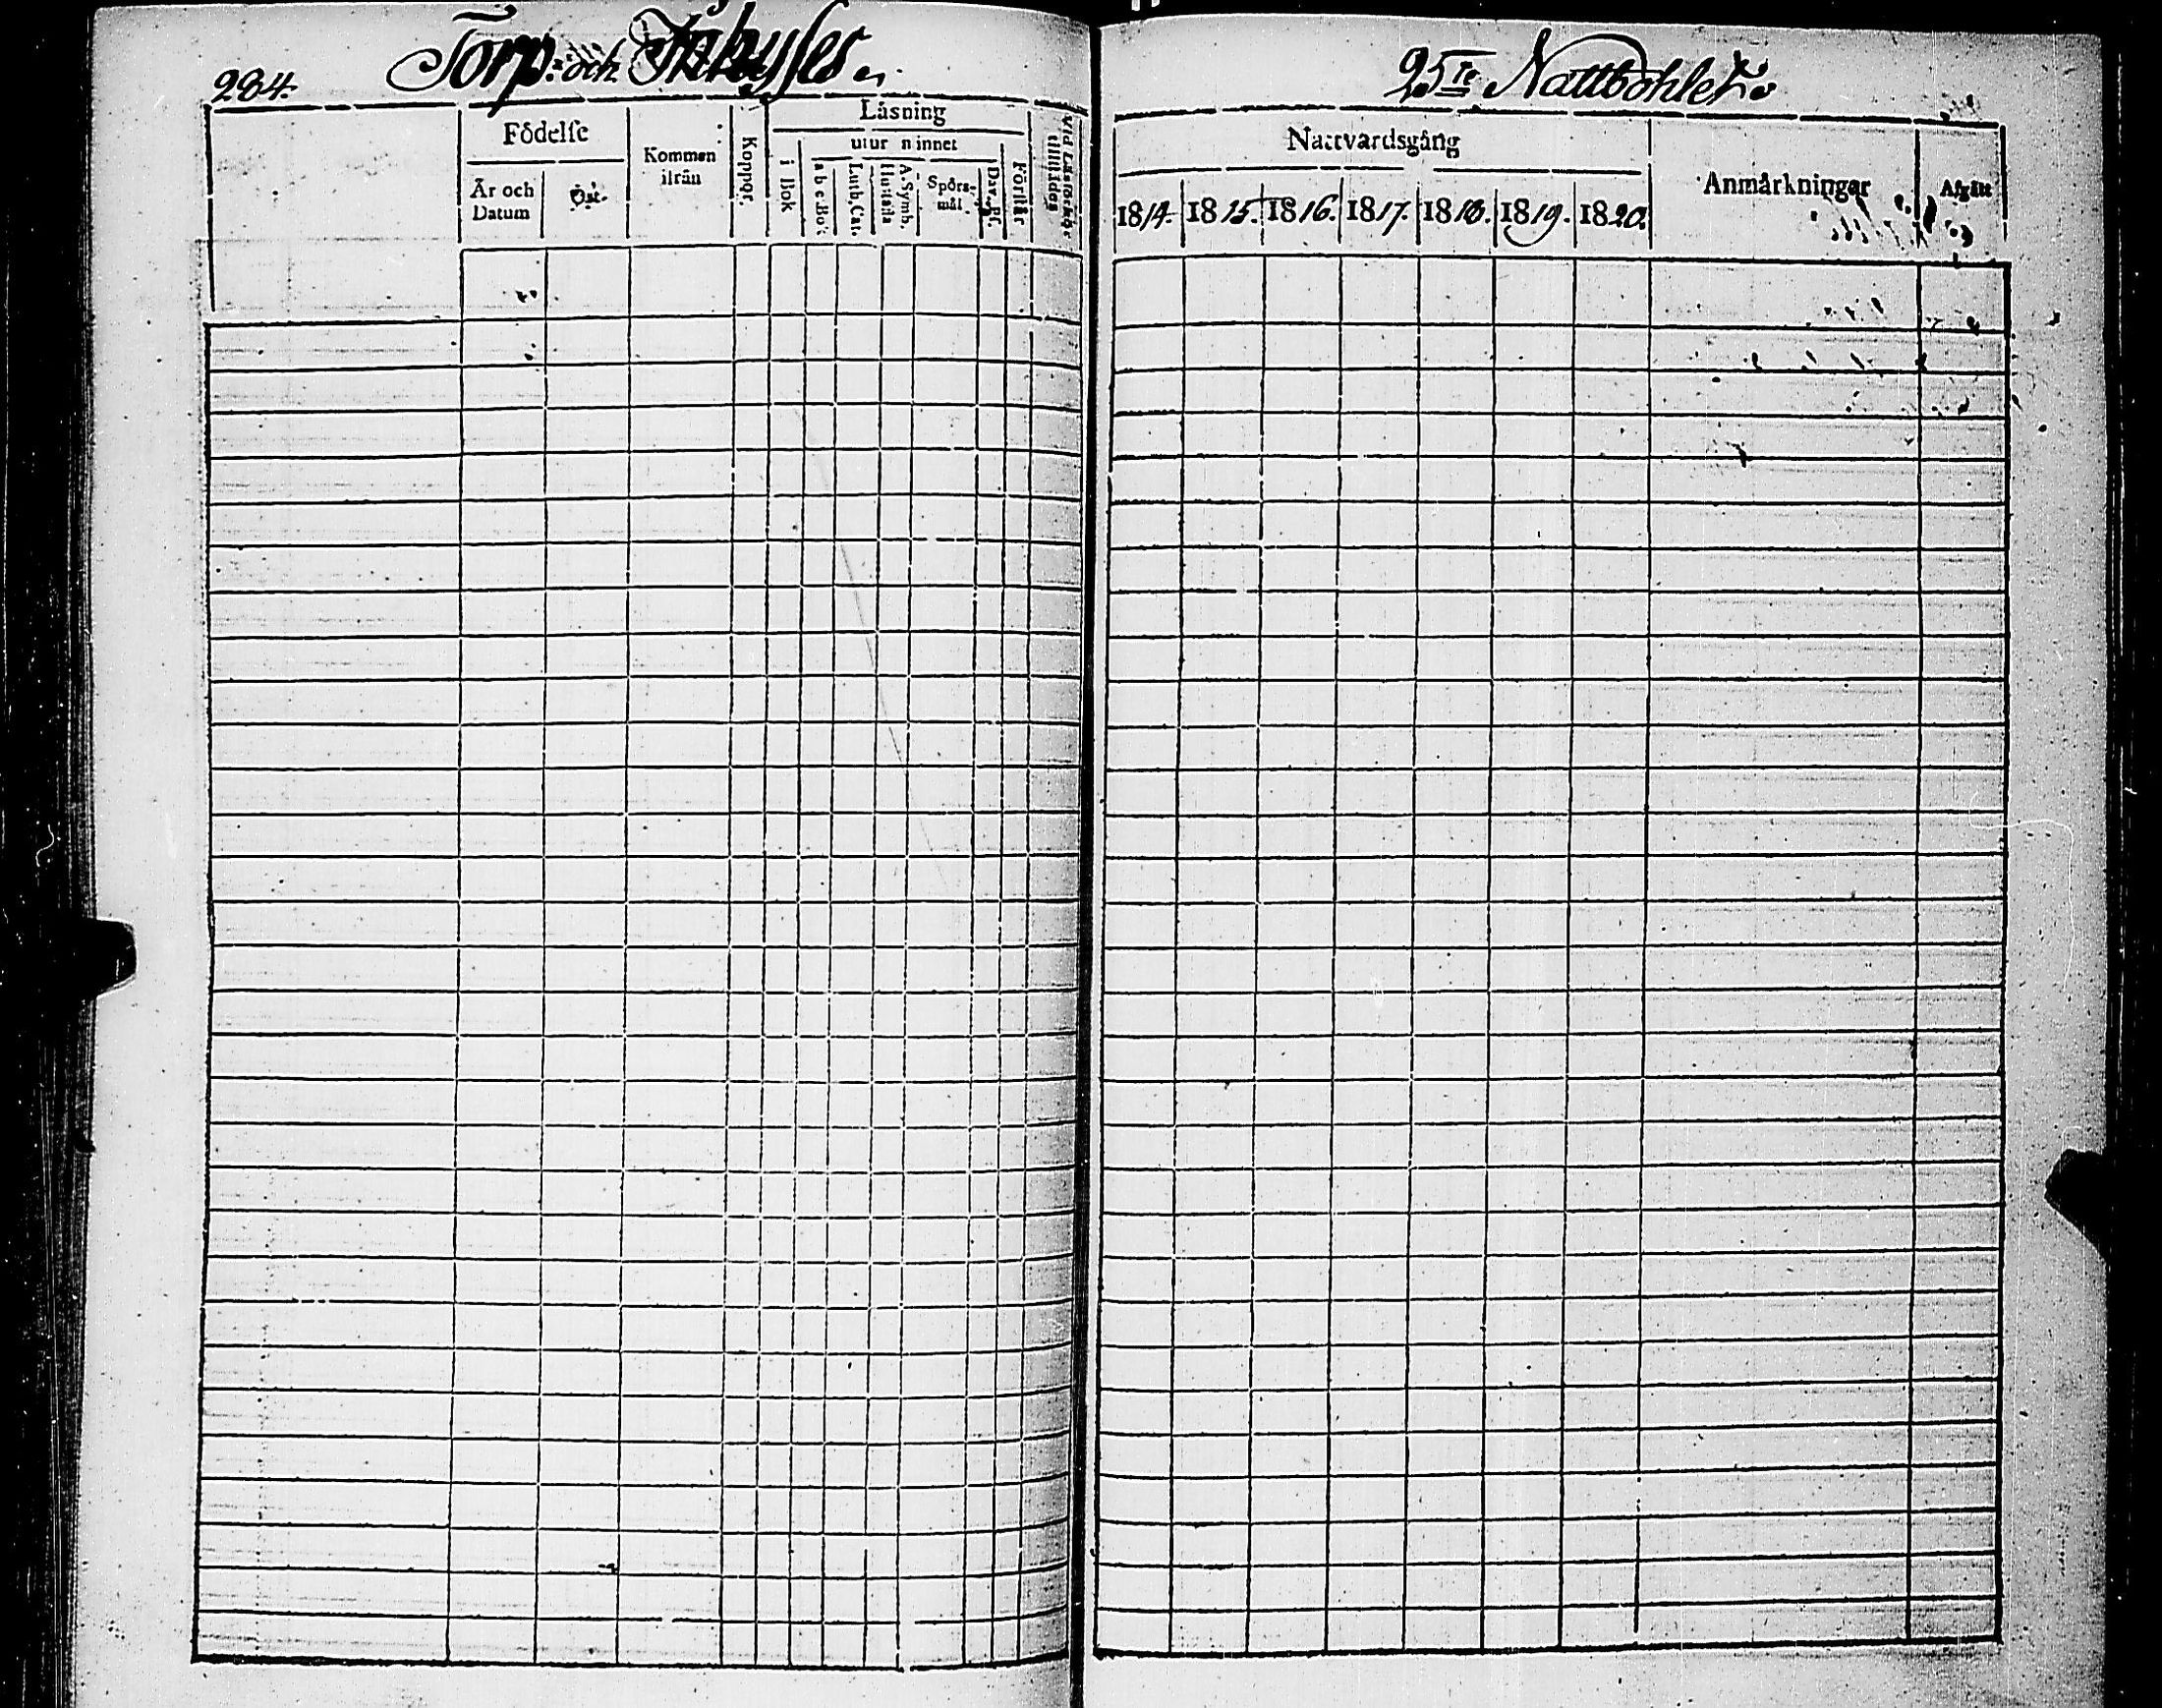 284.
Torp: och Inhyses
Födelse
År och Datum
Ort.
Kommen ifrån
Koppor.
Läsning
utur minnet
i Bok
a b c Bok
Luth. Cat.
A. Symb. Hustafla
Spörsmål
Dav. Ps.
Förstår
Vid Läsförhör tillstädes
25te Nattbohlet.
Nattvardsgång
Anmärkningar
Afgått
1814. 1815. 1816. 1817. 1818. 1819. 1820.